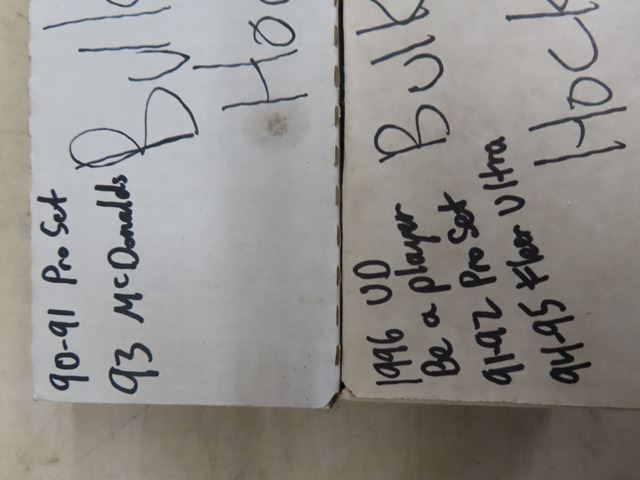 Bulk
Hoc
90-91 Pro Set
93 McDonalds
Bulk
Hock
1996 UD
Be a player
91-92 Pro Set
94-95 Fleer Ultra